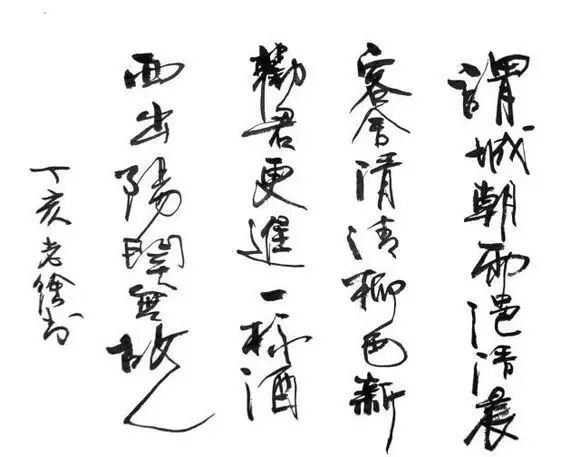 謂城朝雨浥清晨
客舍清清柳色新
勸君更進一杯酒
西出陽關無故人
丁亥老徐书